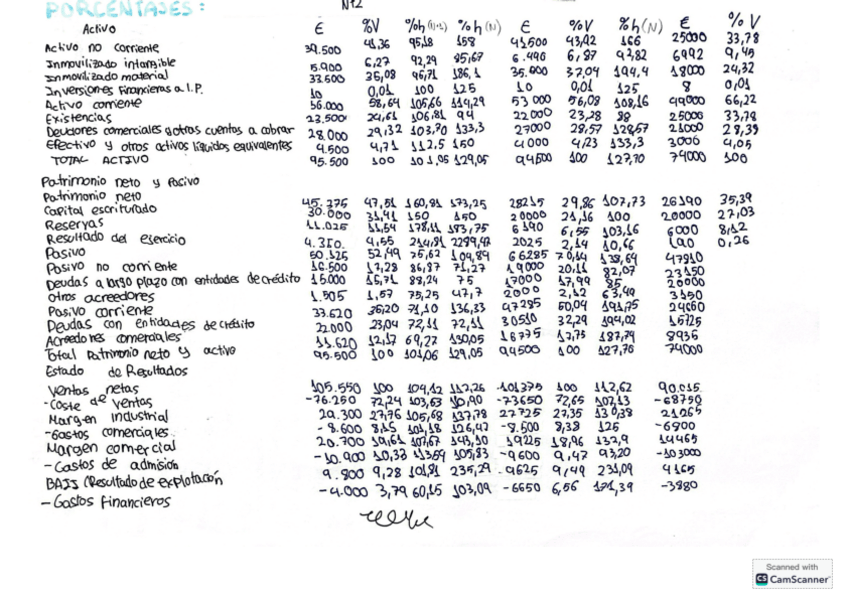 PORCENTAJES: N+2
Activo € %V %h(N+1) %h(N) € %V %h(N) € %V
Activo no corriente 39.500 41,36 95,18 158 41500 43,92 166 25000 33,78
Inmovilizado intangible 5.900 6,27 92,29 85,67 6.490 6,87 92,82 6992 9,45
Inmovilizado material 33.500 35,08 95,71 186,1 35.000 37,04 194,4 18000 24,32
Inversiones financieras a l.P. 10 0,01 100 125 10 0,01 125 8 0,01
Activo corriente 56.000 58,64 105,66 114,29 53000 56,08 108,16 49000 66,22
Existencias 23.500 24,61 106,81 94 22000 23,28 88 25000 33,78
Deudores comerciales y otras cuentas a cobrar 28.000 29,32 103,70 133,3 27000 28,57 128,57 21000 28,39
Efectivo y otros activos líquidos equivalentes 4.500 4,71 112,5 150 4000 4,23 133,3 3000 4,05
TOTAL ACTIVO 95.500 100 101,05 129,05 94500 100 127,70 74000 100
Patrimonio neto y Pasivo
Patrimonio neto 45.375 47,51 160,81 173,25 28215 29,86 107,73 26190 35,39
Capital escriturado 30.000 31,41 150 150 20000 21,16 100 20000 27,03
Reservas 11.025 11,54 178,11 183,75 6190 6,55 103,16 6000 8,12
Resultado del ejercicio 4.350. 4,55 214,81 2289,47 2025 2,14 10,66 190 0,26
Pasivo 50.125 52,49 75,62 104,84 66285 70,14 138,64 47810
Pasivo no corriente 16.500 17,28 86,87 71,27 19000 20,11 82,07 23150
Deudas a largo plazo con entidades de crédito 15000 15,71 88,24 75 17000 17,99 85 20000
Otros acreedores 1.505 1,57 75,25 47,7 2000 2,12 63,49 3150
Pasivo corriente 33.620 35,20 71,10 136,33 47285 50,04 191,75 24660
Deudas con entidades de crédito 22000 23,04 72,11 72,11 30510 32,29 194,02 15725
Acreedores comerciales 11.620 12,17 69,27 130,05 16775 17,75 187,74 8935
Total Patrimonio neto y activo 95.500 100 101,06 129,05 94500 100 127,70 74000
Estado de Resultados
Ventas netas 105.550 100 104,12 117,26 101375 100 112,62 90.015.
-Coste de ventas -76.250 72,24 103,53 110,90 -73650 72,65 107,13 -68750
Margen industrial 29.300 27,76 105,68 137,78 27725 27,35 130,38 21265
-Gastos comerciales. -8.600 8,15 101,18 126,47 -8.500 8,38 125 -6800
Margen comercial 20.700 19,61 107,67 143,10 19225 18,96 132,9 14465
-Gastos de admision -10.900 10,33 113,54 105,83 -9600 9,47 93,20 -103000
BAII (Resultado de explotación 9.800 9,28 101,81 235,29 9625 9,49 231,09 4165
-Gastos Financieros -4.000 3,79 60,15 103,09 -6650 6,56 171,39 -3880
Scanned with
CS CamScanner